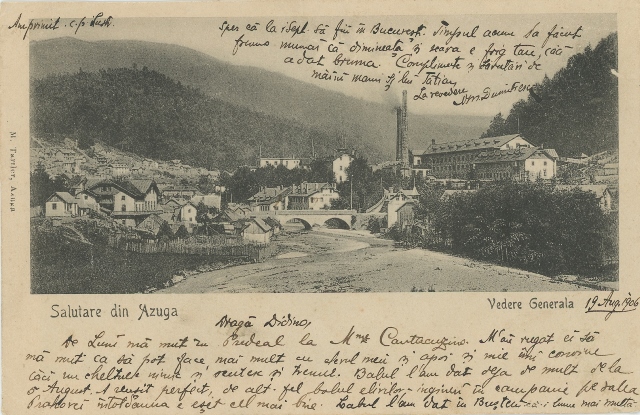 Am primit c.p.
Sper că la 1 Sept. să fiu în București. Timpul acum sa făcut
frumos numai că dimineața și seara e frig tare, căci
a dat bruma. Complimente și sărutări de
mâini mamei și lui Tatian
La revedere
M. Tarrler, Azuga
Salutare din Azuga
Vedere Generala
19 Aug. 906
Dragă Didino,
De Luni mă mut cu Predeal la Mme Cantacuzino. M'au rugat ei să
mă mut ca să pot face mai mult cu și apoi și mie îmi convine
căci nu cheltuesc nimic și cu trenul. Balul l'am dat deja de mult de la
6 August. A reusit perfect, de alt-fel balul elevilor ingineri în companie pe valea
Prahovei întotdeauna a eșit cel mai bine. balul l'am dat în Bușteni